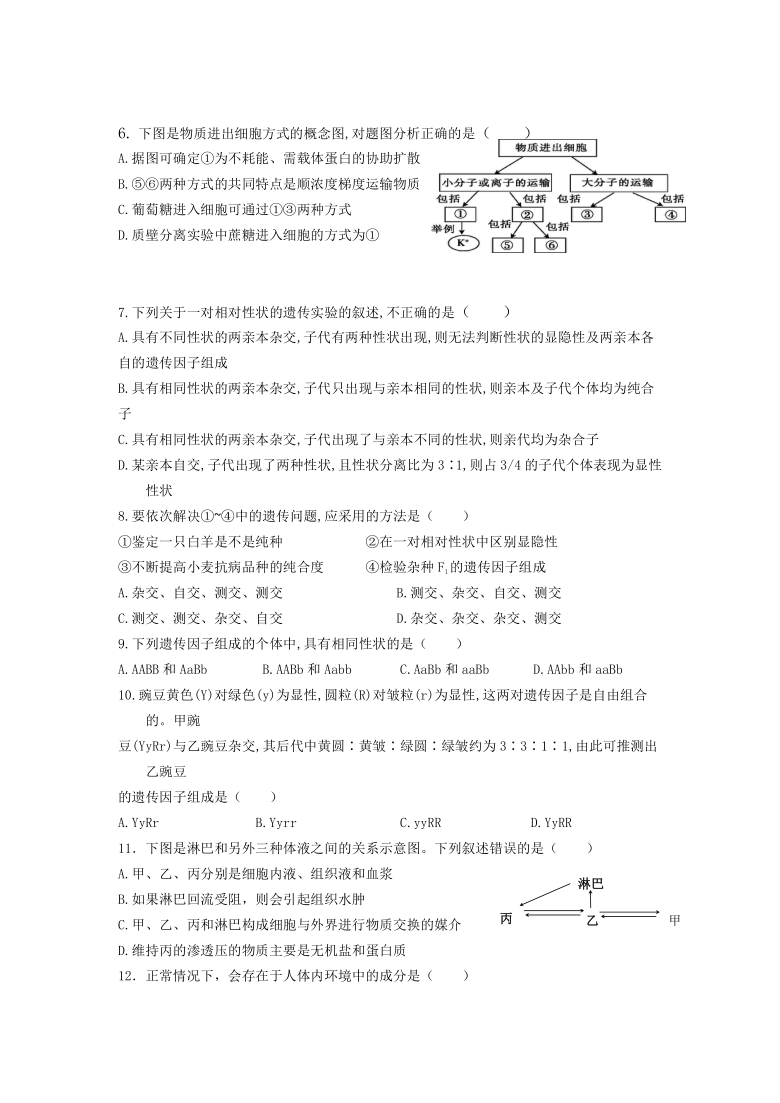 6. 下图是物质进出细胞方式的概念图,对题图分析正确的是 (      )
A.据图可确定①为不耗能、需载体蛋白的协助扩散
B.⑤⑥两种方式的共同特点是顺浓度梯度运输物质
C.葡萄糖进入细胞可通过①③两种方式
D.质壁分离实验中蔗糖进入细胞的方式为①
物质进出细胞
小分子或离子的运输 大分子的运输
包括 包括 包括 包括
① ② ③ ④
举例 包括 包括
K⁺ ⑤ ⑥
7.下列关于一对相对性状的遗传实验的叙述,不正确的是 (      )
A.具有不同性状的两亲本杂交,子代有两种性状出现,则无法判断性状的显隐性及两亲本各
自的遗传因子组成
B.具有相同性状的两亲本杂交,子代只出现与亲本相同的性状,则亲本及子代个体均为纯合
子
C.具有相同性状的两亲本杂交,子代出现了与亲本不同的性状,则亲代均为杂合子
D.某亲本自交,子代出现了两种性状,且性状分离比为 3∶1,则占 3/4 的子代个体表现为显性
性状
8.要依次解决①~④中的遗传问题,应采用的方法是 (      )
①鉴定一只白羊是不是纯种 ②在一对相对性状中区别显隐性
③不断提高小麦抗病品种的纯合度 ④检验杂种 F₁的遗传因子组成
A.杂交、自交、测交、测交 B.测交、杂交、自交、测交
C.测交、测交、杂交、自交 D.杂交、杂交、杂交、测交
9.下列遗传因子组成的个体中,具有相同性状的是 (      )
A.AABB 和 AaBb B.AABb 和 Aabb C.AaBb 和 aaBb D.AAbb 和 aaBb
10.豌豆黄色(Y)对绿色(y)为显性,圆粒(R)对皱粒(r)为显性,这两对遗传因子是自由组合
的。甲豌
豆(YyRr)与乙豌豆杂交,其后代中黄圆∶黄皱∶绿圆∶绿皱约为 3∶3∶1∶1,由此可推测出
乙豌豆
的遗传因子组成是 (      )
A.YyRr B.Yyrr C.yyRR D.YyRR
11. 下图是淋巴和另外三种体液之间的关系示意图。下列叙述错误的是 (      )
A.甲、乙、丙分别是细胞内液、组织液和血浆
B.如果淋巴回流受阻，则会引起组织水肿
C.甲、乙、丙和淋巴构成细胞与外界进行物质交换的媒介
D.维持丙的渗透压的物质主要是无机盐和蛋白质
淋巴
丙 乙 甲
12. 正常情况下，会存在于人体内环境中的成分是 (      )